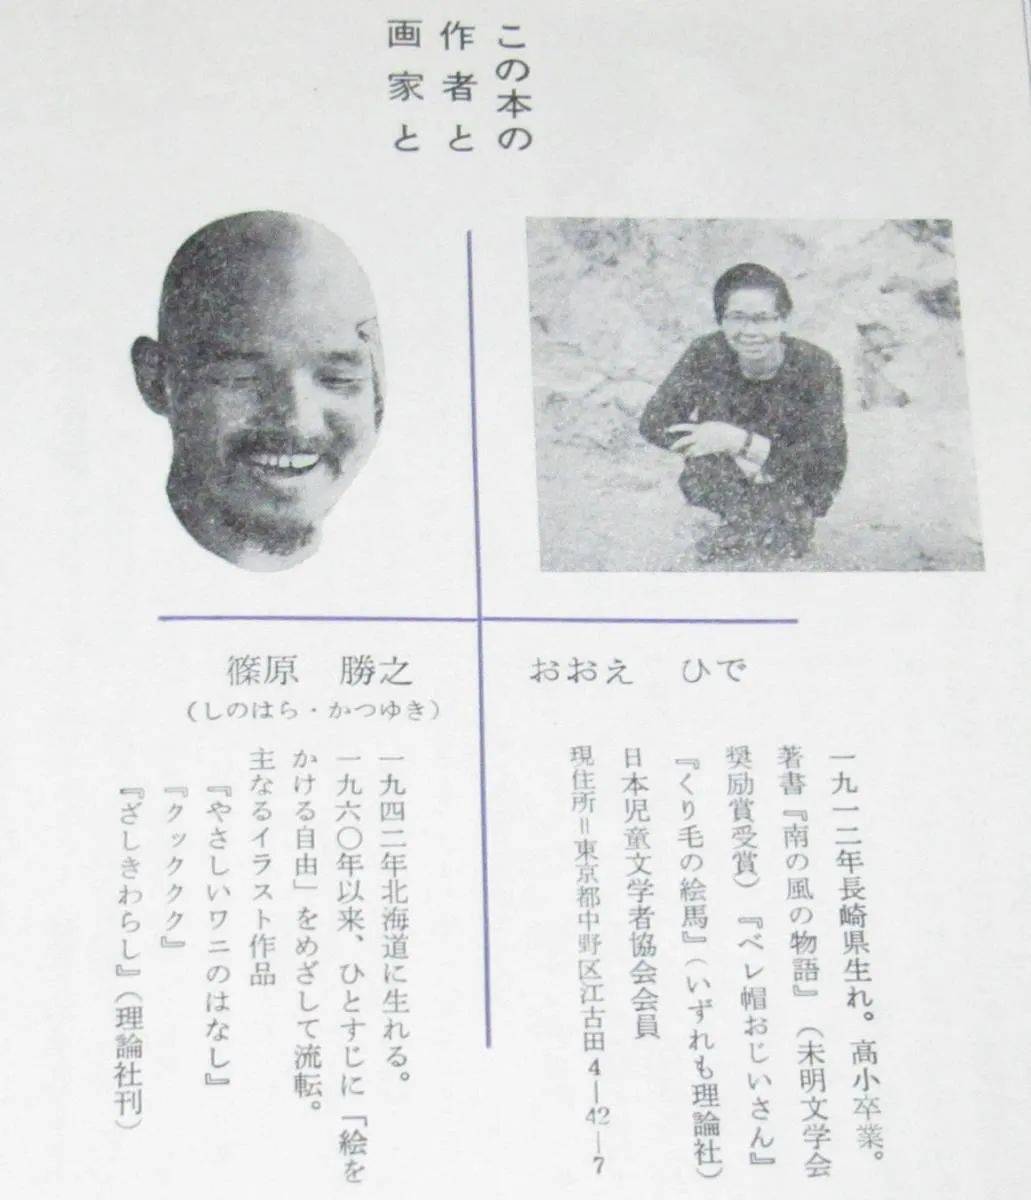 この本の
作者と
画家と
おおえ　ひで
一九一二年長崎県生れ。高小卒業。
著書『南の風の物語』（未明文学会
奨励賞受賞）『ベレ帽おじいさん』
『くり毛の絵馬』（いずれも理論社）
日本児童文学者協会会員
現住所＝東京都中野区江古田4―42―7
篠原　勝之
（しのはら・かつゆき）
一九四二年北海道に生れる。
一九六〇年以来、ひとすじに「絵を
かける自由」をめざして流転。
主なるイラスト作品
『やさしいワニのはなし』
『クックククク』
『ざしきわらし』（理論社刊）